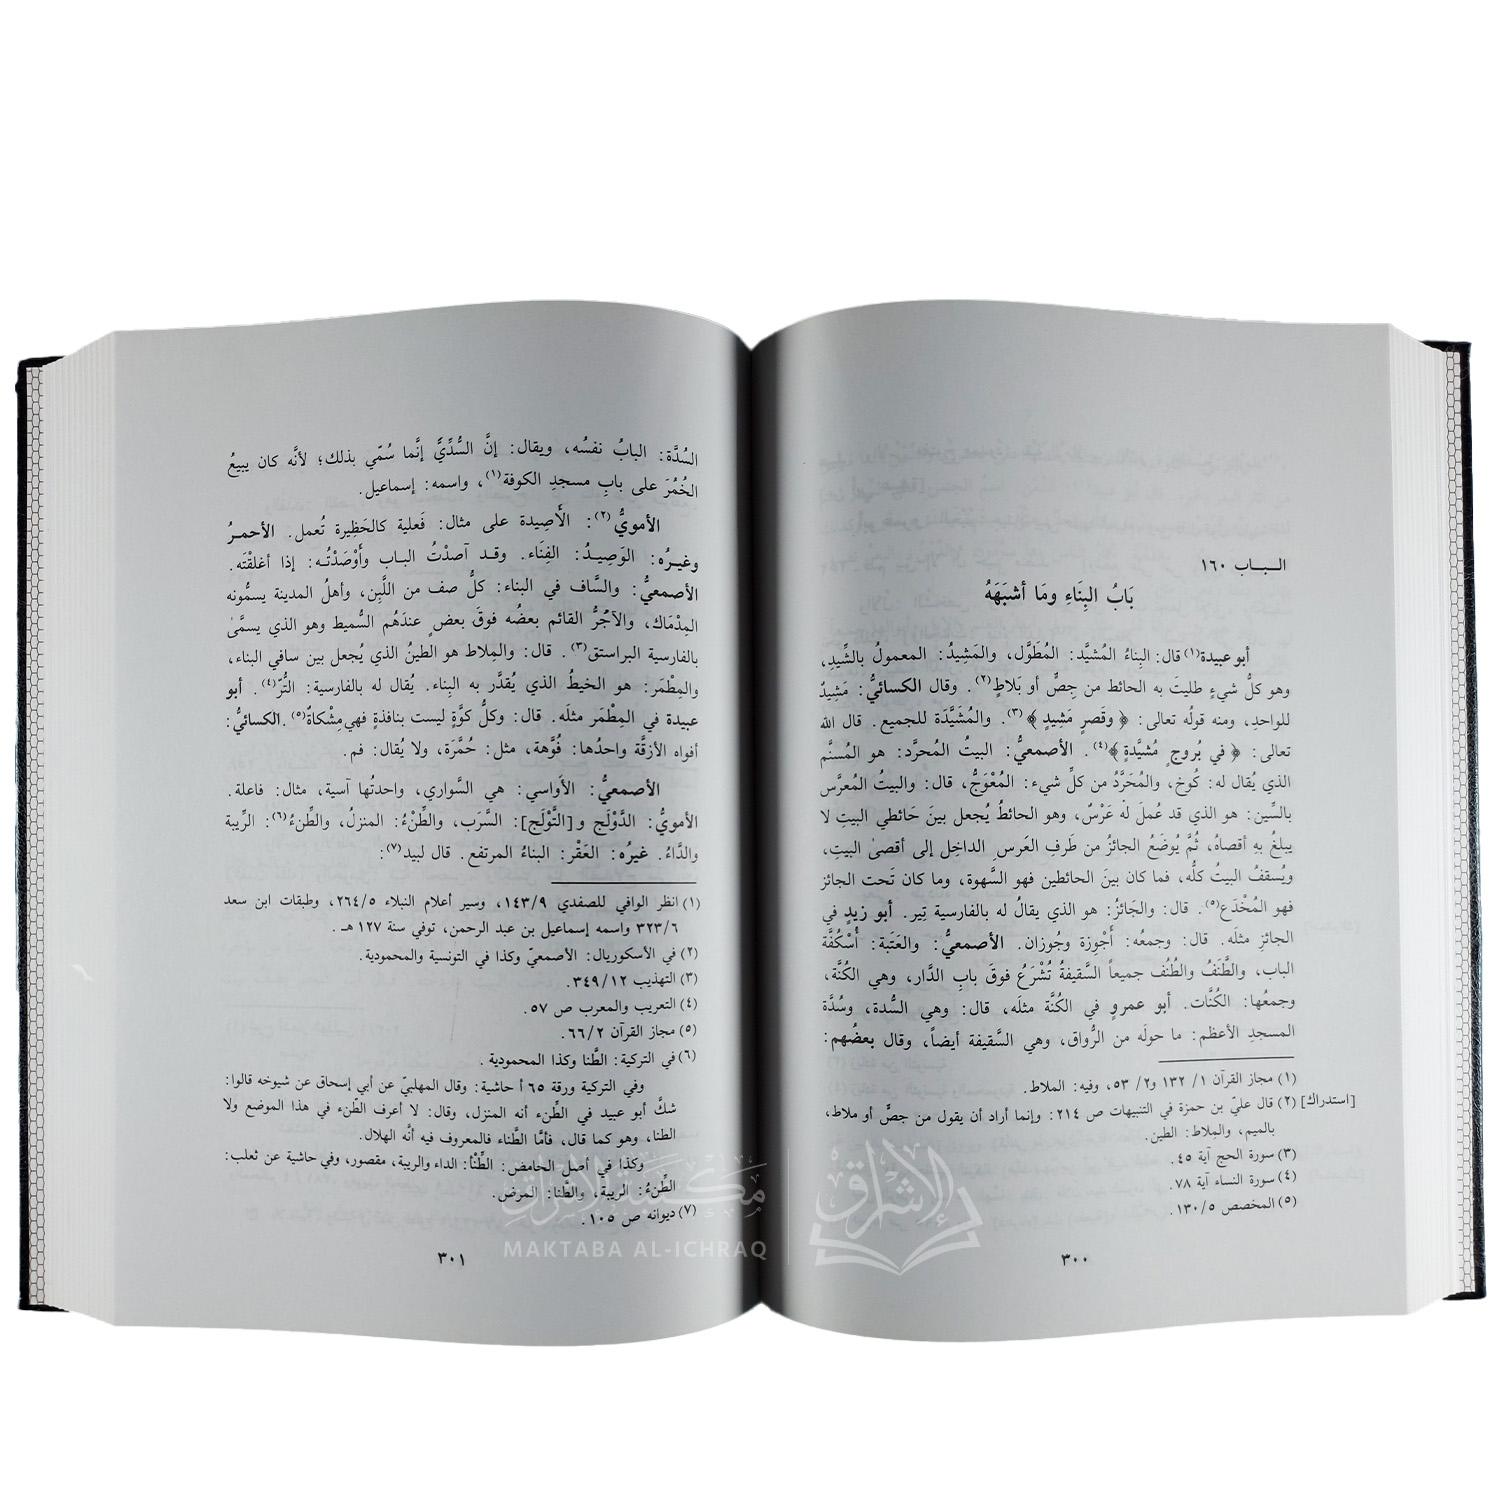 الـبـاب ١٦٠
بَابُ البِنَاءِ ومَا أشبَهَهُ
أبو عبيدة(١) قال: البِناءُ المُشيَّد: المُطَوَّل، والمَشِيدُ: المعمولُ بالشِّيدِ،
وهو كلُّ شيءٍ طليتَ به الحائط من جِصٍّ أو بَلاطٍ(٢). وقال الكسائيُّ: مَشِيدٌ
للواحدِ، ومنه قولُه تعالى: ﴿ وقَصرٍ مَشِيدٍ ﴾(٣). والمُشَيَّدَة للجميع. قال الله
تعالى: ﴿ في بُروجٍ مُشيَّدةٍ ﴾(٤). الأصمعيُّ: البيتُ المُحرَّد: هو المُسنَّم
الذي يُقال له: كُوخ، والمُحَرَّدُ من كلِّ شيء: المُعْوَجُّ، قال: والبيتُ المُعرَّس
بالسِّين: هو الذي قد عُملَ لهُ عَرْسٌ، وهو الحائطُ يُجعل بينَ حَائطي البيتِ لا
يبلغُ بهِ أقصاهُ، ثُمَّ يُوضَعُ الجائزُ من طَرفِ العَرسِ الداخِل إلى أقصىٰ البيتِ،
ويُسقفُ البيتُ كلُّه، فما كان بينَ الحائطين فهو السَّهوة، وما كان تَحت الجائز
فهو المُخْدَع(٥). قال: والجَائزُ: هو الذي يقالُ له بالفارسية تِير. أبو زيدٍ في
الجائزِ مثلَه. قال: وجمعُه: أَجْوِزة وجُوزان. الأصمعيُّ: والعَتَبة: أُسْكُفَّة
الباب، والطَّنَفُ والطُنُف جميعاً السَّقيفةُ تُشْرَعُ فوقَ بابِ الدَّار، وهي الكُنَّة،
وجمعُها: الكُنَّات. أبو عمروٍ في الكُنَّة مثلَه، قال: وهي السُّدة، وسُدَّة
المسجدِ الأعظم: ما حولَه من الرُّواق، وهي السَّقيفة أيضاً، وقال بعضُهم:
(١) مجاز القرآن ١/ ١٣٢ و٢/ ٥٣، وفيه: الملاط.
[استدراك] (٢) قال عليّ بن حمزة في التنبيهات ص ٢١٤: وإنما أراد أن يقول من جصٍّ أو ملاط،
بالميم، والمِلاط: الطين.
(٣) سورة الحج آية ٤٥.
(٤) سورة النساء آية ٧٨.
(٥) المخصص ٥/ ١٣٠.
٣٠٠
السُدَّة: البابُ نفسُه، ويقال: إنَّ السُّدِّيَّ إنَّما سُمّي بذلك؛ لأنَّه كان يبيعُ
الخُمُرَ على بابِ مسجدِ الكوفة(١)، واسمه: إسماعيل.
الأمويُّ(٢): الأَصِيدة على مثال: فَعلية كالحَظِيرة تُعمل. الأحمـرُ
وغيـرُه: الوَصِيـدُ: الفِنَاء. وقـد آصدْتُ البـاب وأَوْصَدْتُـه: إذا أغلقْتَه.
الأصمعيُّ: والسَّاف في البناء: كلُّ صف من اللَّبِن، وأهلُ المدينة يسمُّونه
المِدْمَاك، والآجُرُّ القائم بعضُه فوقَ بعضٍ عندَهُم السُّميط وهو الذي يسمَّىٰ
بالفارسية البراستق(٣). قال: والمِلاط هو الطينُ الذي يُجعل بين سافي البناء،
والمِطْمَر: هو الخيطُ الذي يُقدَّر به البِناء. يُقال له بالفارسية: التُّرّ(٤). أبو
عبيدة في المِطْمَر مثلَه. قال: وكلُّ كوَّةٍ ليست بنافذةٍ فهي مِشْكاةٌ(٥). الكسائيُّ:
أفواه الأزقَّة واحدُها: فُوَّهة، مثل: حُمَّرَة، ولا يُقال: فم.
الأصمعيُّ: الأَواسي: هي السَّواري، واحدتُها آسية، مثال: فاعلة.
الأمويُّ: الدَّوْلَج و[التَّوْلَج]: السَّرَب، والطِّنْءُ: المنزلُ، والطِّنءُ(٦): الرِّيبة
والدَّاءُ. غيرُه: العَقْر: البناءُ المرتفع. قال لبيد(٧):
(١) انظر الوافي للصفدي ١٤٣/٩، وسير أعلام النبلاء ٢٦٤/٥، وطبقات ابن سعد
٣٢٣/٦ واسمه إسماعيل بن عبد الرحمن، توفي سنة ١٢٧ هـ.
(٢) في الأسكوريال: الأصمعيّ وكذا في التونسية والمحمودية.
(٣) التهذيب ٣٤٩/١٢.
(٤) التعريب والمعرب ص ٥٧.
(٥) مجاز القرآن ٦٦/٢.
(٦) في التركية: الطَّنا وكذا المحمودية.
وفي التركية ورقة ٦٥ أ حاشية: وقال المهلبيّ عن أبي إسحاق عن شيوخه قالوا:
شكَّ أبو عبيد في الطِّنء أنه المنزل، وقال: لا أعرف الطّنء في هذا الموضع ولا
الطنا، وهو كما قال، فأمَّا الطَّناء فالمعروف فيه أنَّه الهلال.
وكذا في أصل الحامض: الطِّنْأ: الداء والريبة، مقصور، وفي حاشية عن ثعلب:
الطِّنءُ: الريبة، والطَّنا: المرض.
(٧) ديوانه ص ١٠٥.
٣٠١
مكتبة الإشراق
MAKTABA AL-ICHRAQ
الإشراق